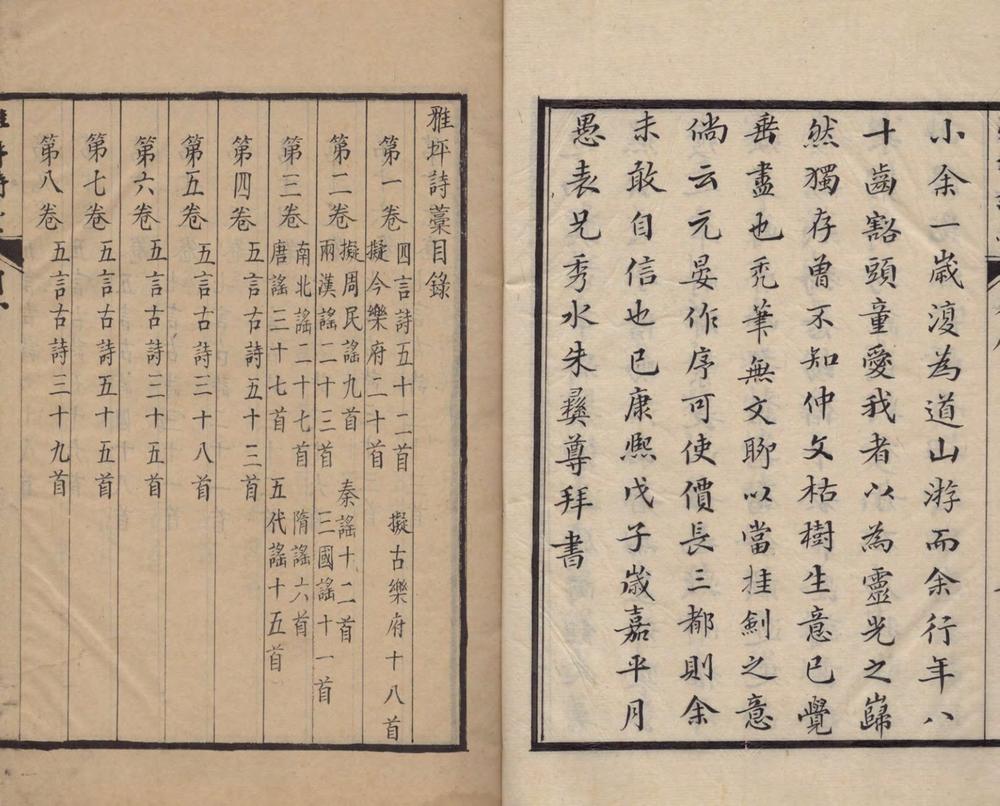 小余一歲復為道山游而余行年八
十齒豁頭童愛我者以為靈光之巋
然獨存曾不知仲文枯樹生意已覺
垂盡也禿筆無文聊以當挂劍之意
倘云元晏作序可使價長三都則余
未敢自信也已康熙戊子歲嘉平月
愚表兄秀水朱彝尊拜書
雅坪詩藁目錄
第一卷 四言詩五十二首 擬古樂府十八首
擬今樂府二十首
第二卷 擬周民謠九首 秦謠十二首
兩漢謠二十三首 三國謠十一首
第三卷 南北謠二十七首 隋謠六首
唐謠三十七首 五代謠十五首
第四卷 五言古詩五十三首
第五卷 五言古詩三十八首
第六卷 五言古詩三十五首
第七卷 五言古詩五十五首
第八卷 五言古詩三十九首